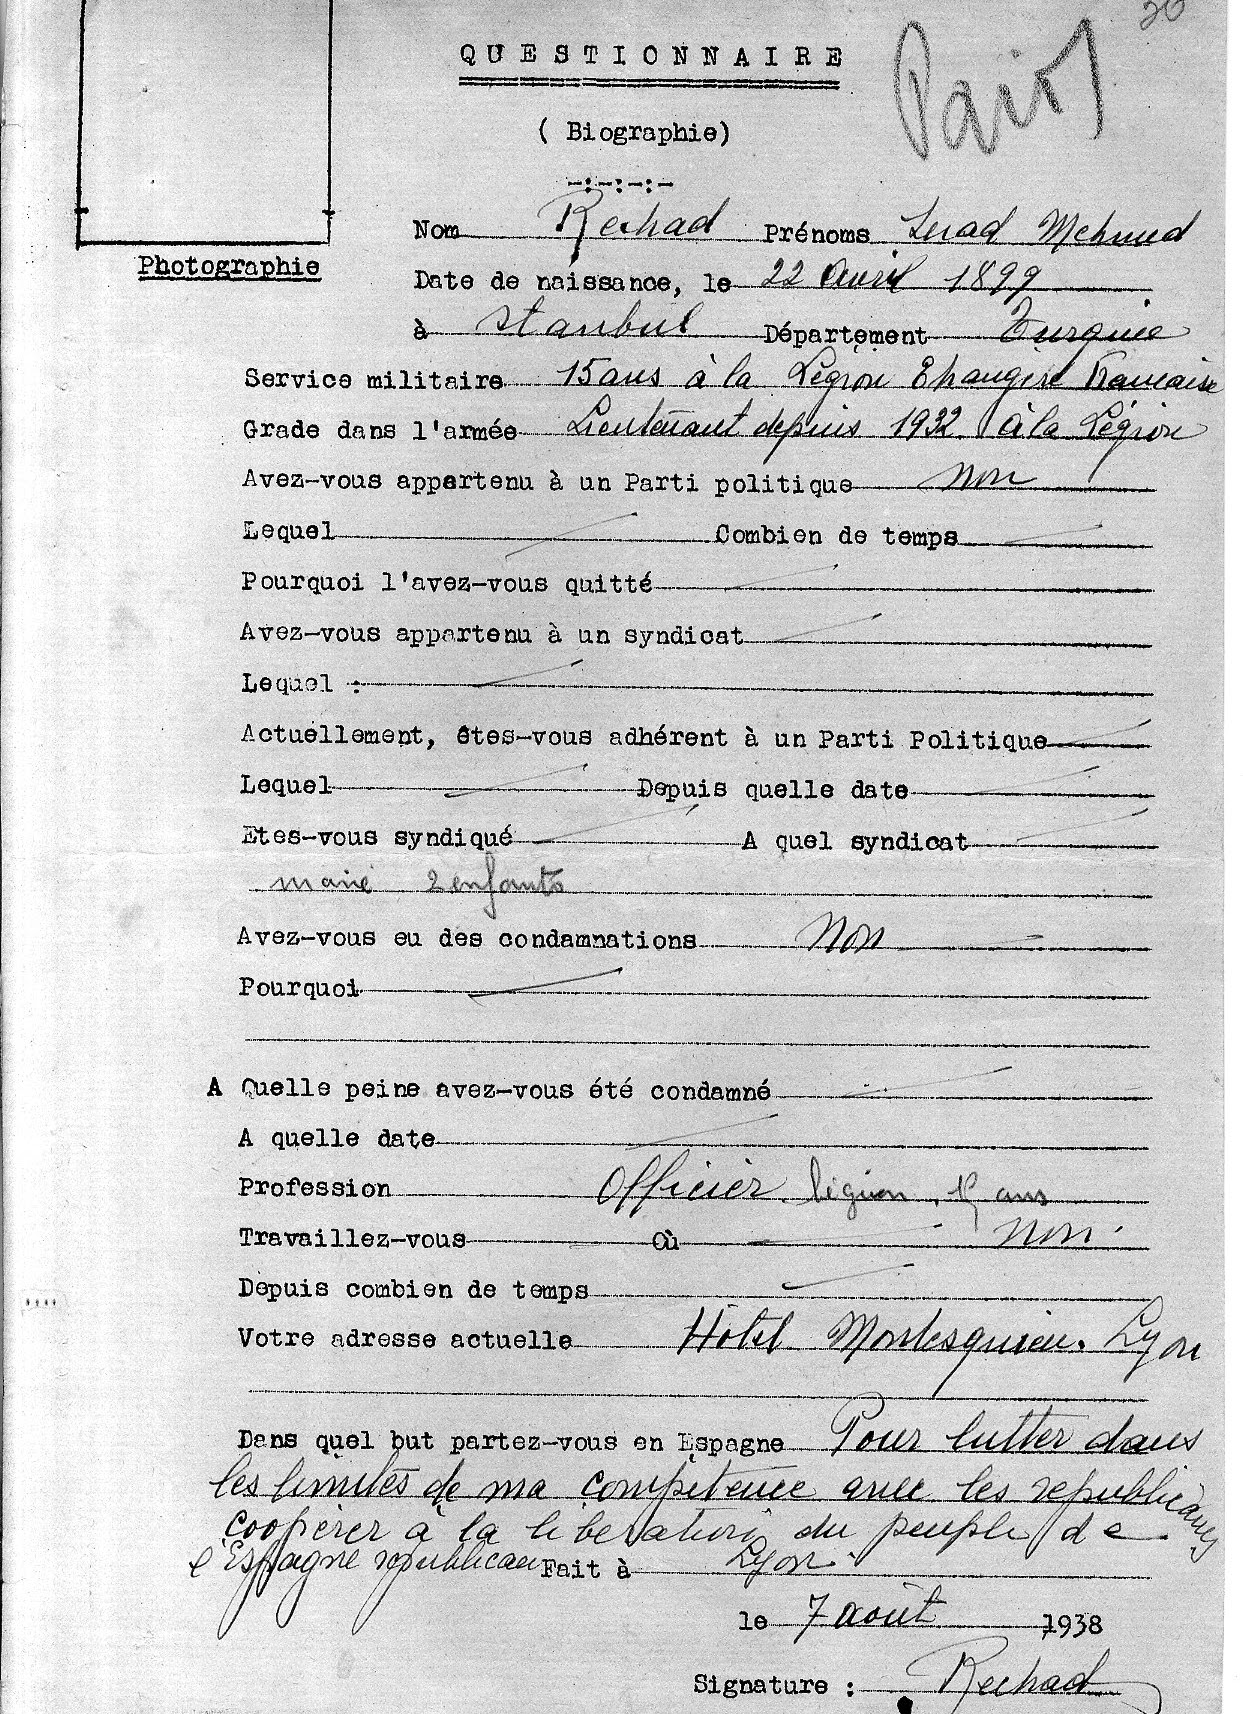 30
Paris
QUESTIONNAIRE
( Biographie)
-:-:-:-
Nom Rechad Prénoms Mehmed
Photographie
Date de naissance, le 22 Avril 1899
à stanbul Département Turquie
Service militaire 15 ans à la Légion Etrangère Francaise
Grade dans l'armée Lieutenant depuis 1932 à la Légion
Avez-vous appartenu à un Parti politique Non
Lequel Combien de temps
Pourquoi l'avez-vous quitté
Avez-vous appartenu à un syndicat
Lequel :
Actuellement, êtes-vous adhérent à un Parti Politique
Lequel Depuis quelle date
Etes-vous syndiqué A quel syndicat
marié 2 enfants
Avez-vous eu des condamnations Non
Pourquoi
A Quelle peine avez-vous été condamné
A quelle date
Profession Officier légion, 15 ans
Travaillez-vous Où Non
Depuis combien de temps
Votre adresse actuelle Hôtel Montesquieu. Lyon
Dans quel but partez-vous en Espagne Pour lutter dans
les limites de ma compétence avec les republicains
coopérer à la liberation du peuple de
l'Espagne republicain Fait à Lyon
le 7 août 1938
Signature : Rechad